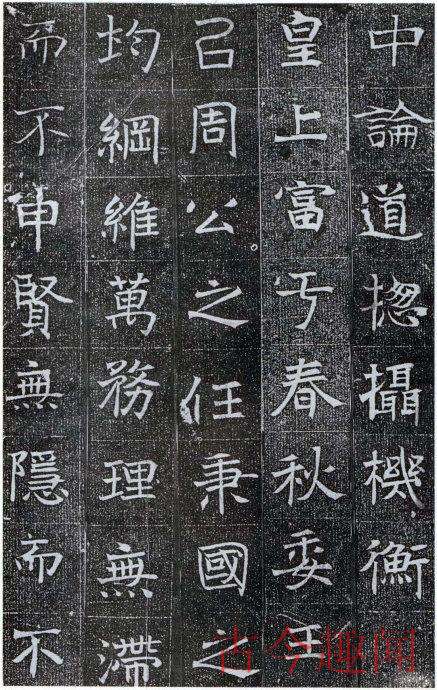 中論道揔攝機衡
皇上富亏春秋委王
㠯周公之任秉國之
均綱維萬務理無滯
而不申賢無隱而不
古今趣闻